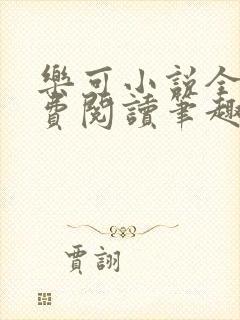 樂可小說全
費閱讀筆趣
賈詡